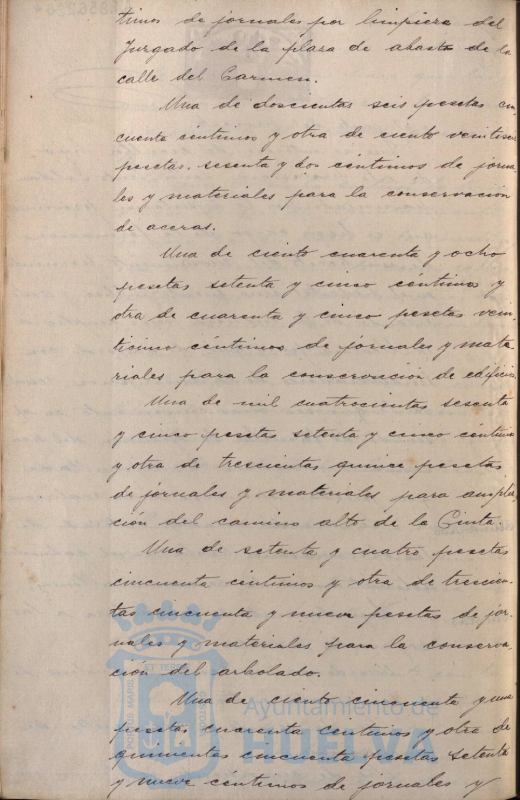 timos de jornales por limpieza del
Juzgado de la plaza de abasto de la
calle del Carmen.
Una de doscientas seis pesetas cin
cuenta céntimos y otra de ciento veintiseis
pesetas sesenta y dos céntimos de jorna
les y materiales para la conservación
de aceras.
Una de ciento cuarenta y ocho
pesetas setenta y cinco céntimos y
otra de cuarenta y cinco pesetas vein
ticinco céntimos de jornales y mate
riales para la conservación de edificios.
Una de mil cuatrocientas sesenta
y cinco pesetas setenta y cinco céntimos
y otra de trescientas quince pesetas
de jornales y materiales para amplia
ción del camino alto de la Cinta.
Una de setenta y cuatro pesetas
cincuenta céntimos y otra de trescien-
tas cincuenta y nueve pesetas de jor-
nales y materiales para la conserva,
ción del arbolado.
Una de ciento cincuenta y una
pesetas cincuenta centimos y otra de
quinientas cincuenta pesetas setenta
y nueve céntimos de jornales y
PORTUS MARIS ET TERRAE CUSTODIA
Ayuntamiento de
HUELVA